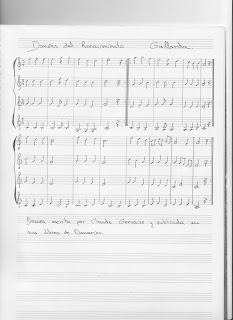 Danzas del Renacimiento Gallarda
Danza escrita por Claude Gervaise y publicada en
sus libros de Danceries.